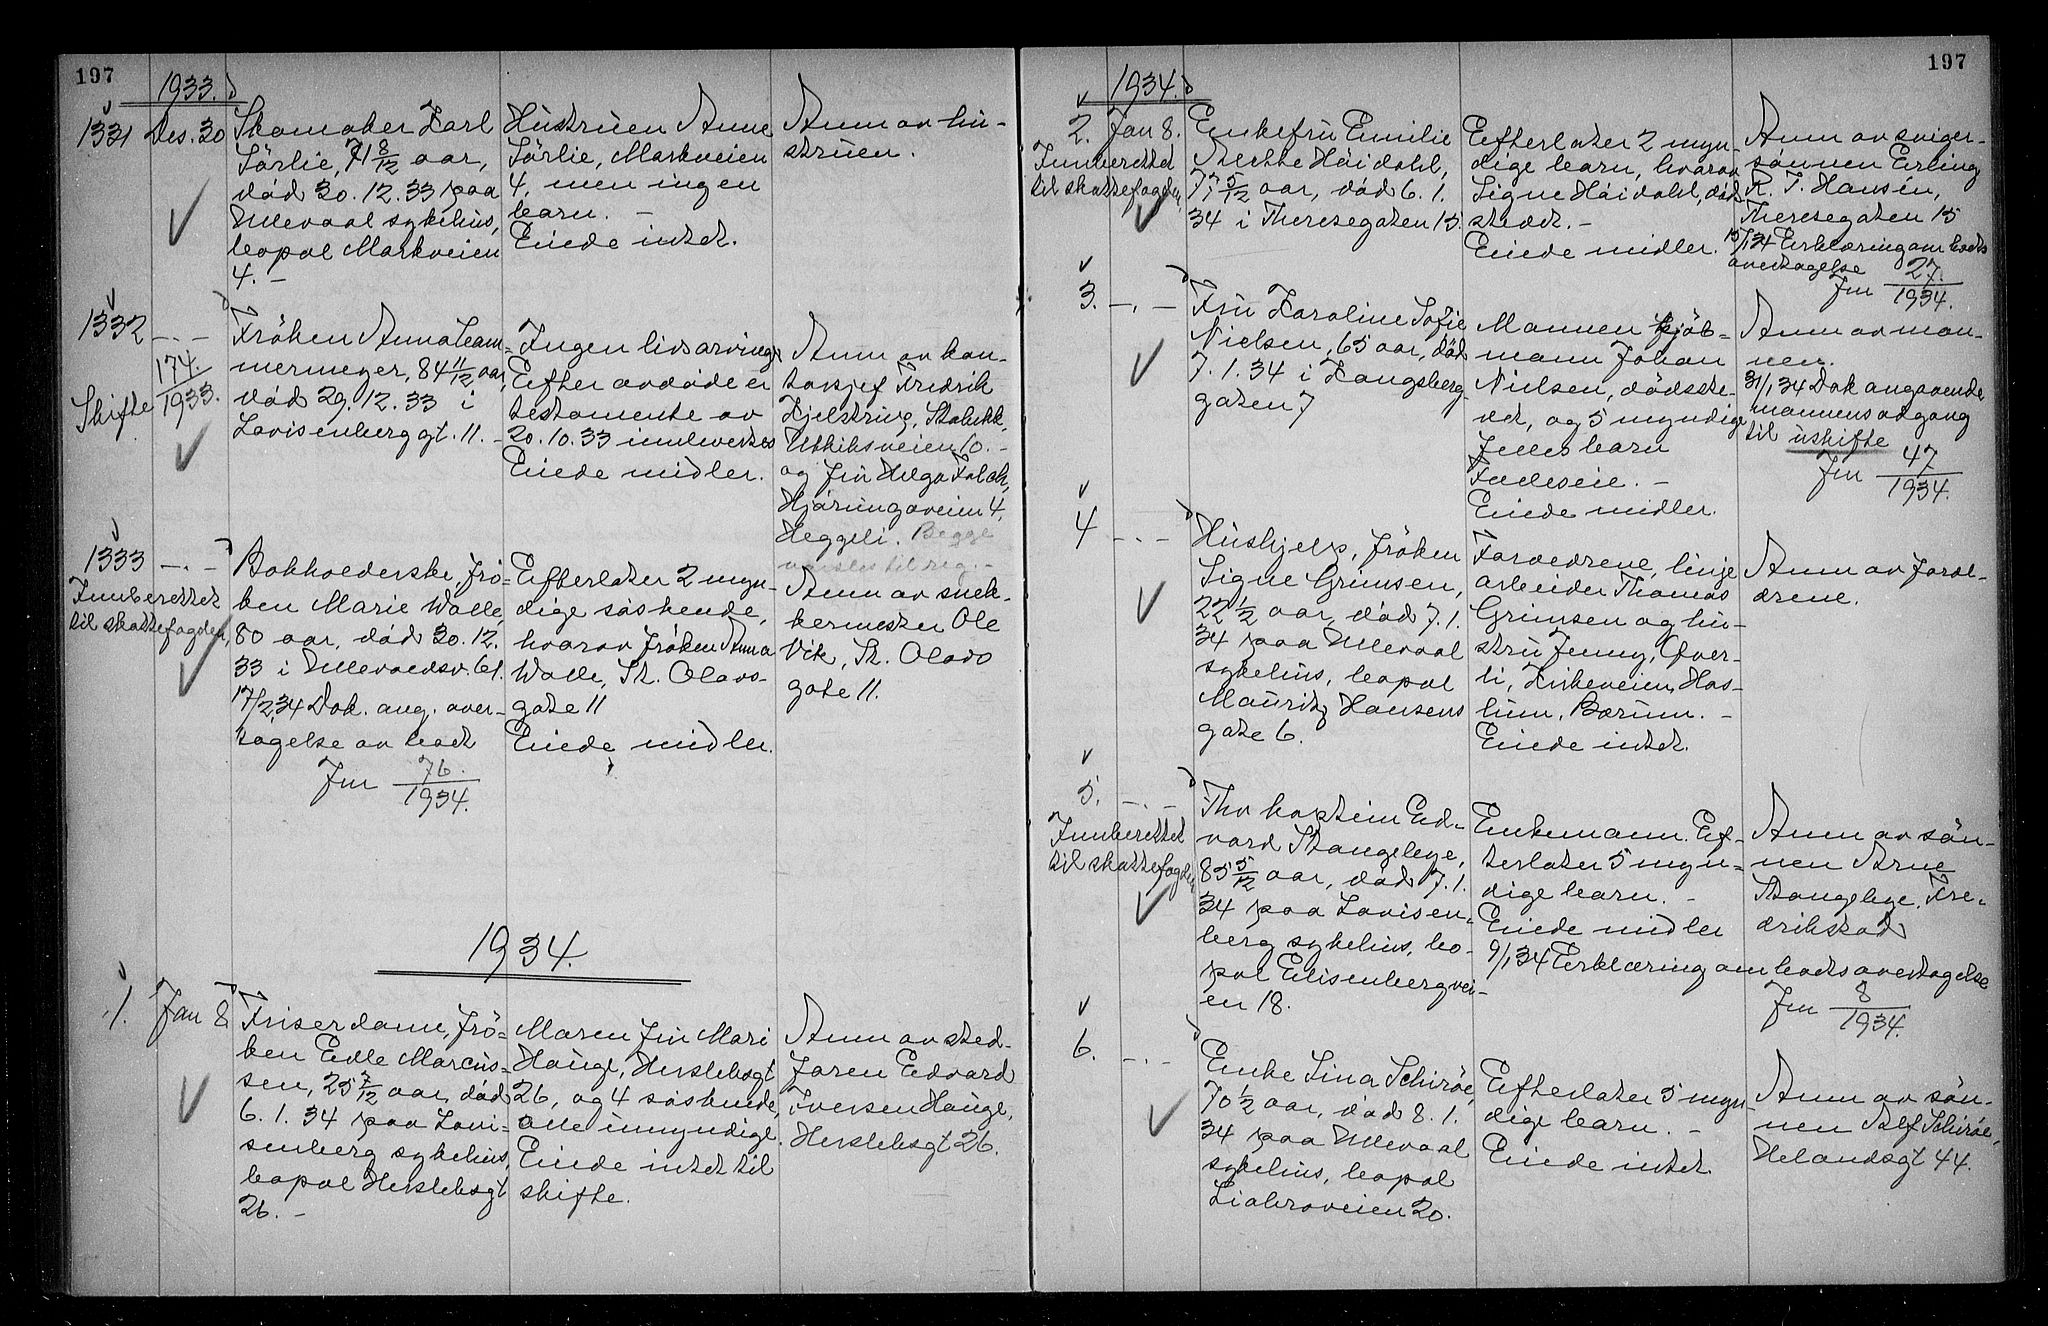 197
1933.
1331
Des. 30
Skomaker Karl
Sörlie, 71 8/12 aar,
död 30.12.33 paa
Ullevaal sykehus,
bopæl Markveien
4. -
Hustruen Anne
Sörlie, Markveien
4, men ingen
barn. -
Eiede intet.
Anm av hu-
struen.
1332
- . -
174.
1933.
Skifte
Fröken Anna
84 11/12 aar,
död 29.12.33 i
Lovisenberggt. 11. -
Ingen livsarvinger
Efter avdöde er
testamente av
20.10.33 innlevert
Eiede midler.
Anm av kon-
torsjef Fredrik
Stabekk,
Utsiktsveien 10. -
og fru Helga Falch,
Hjörungaveien 4,
Heggeli. Begge
varsles til reg. -
1333
- . -
Innberettet
til skattefogden,
Bokholderske, frö-
ken Marie Walle,
80 aar, död 30.12.
33 i Ullevoldsv. 61.
17/2.34 Dok. ang. over-
tagelse av boet
Jnr 76.
1934.
Efterlater 2 myn-
dige söskende,
hvorav fröken Anna
Walle, St. Olavs-
gate 11
Eiede midler.
Anm av snek-
kermester Ole
Vik, St. Olavs
gate 11.
1934.
1.
Jan 8
Friserdame, frö-
ken Edle Marcus-
sen, 25 7/12 aar, död
6.1.34 paa Lovi-
senberg sykehus,
bopæl Herslebsgt
26. -
Moren fru Mari
Hauge, Herslebsgt
26, og 4 söskende,
alle umyndige.
Eiede intet til
skifte.
Anm av sted-
faren Edvard
Iversen Hauge,
Herslebsgt 26.
197
1934.
2.
Jan 8.
Innberettet
til skattefogden,
Enkefru Emilie
Høidahl,
77 5/12 aar, död 6.1.
34 i Theresegaten 15.
Efterlater 2 myn-
dige barn, hvorav
Signe Høidahl, död-
stedet. -
Eiede midler.
Anm av sviger-
sönnen Erling
R. J. Hansen,
Theresegaten 15
15/1.34 Erklæring om boets
overtagelse
Jnr 27.
1934.
3.
- . -
Fru Karoline Sofie
Nielsen, 65 aar, död
7.1.34 i Kongsberg-
gaten 7
Mannen kjöb-
mann Johan
Nielsen, dödsste-
det, og 5 myndige
felles barn
Felleseie. -
Eiede midler.
Anm av man-
nen.
31/1.34 Dok angaaende
mannens adgang
til uskifte
Jnr 47
1934.
4
- . -
Hushjelp, fröken
Signe Grimsen,
22 1/2 aar, död 7.1.
34 paa Ullevaal
sykehus, bopæl
Mauritz Hansens
gate 6.
Forældrene, linje-
arbeider Thomas
Grimsen og hu-
stru Jenny, Över-
li, Kirkeveien, Has-
lum, Bærum. -
Eiede intet.
Anm av foræl-
drene.
5.
- . -
Innberettet
til skattefogden
Fhv kaptein Ed-
vard Stangebye,
85 5/12 aar, död 7.1.
34 paa Lovisen-
berg sykehus, bo-
pæl Elisenbergvei-
en 18.
Enkemann. Ef-
terlater 5 myn-
dige barn. -
Eiede midler
Anm av sön-
nen Arne
Stangebye, Fre-
drikstad
9/1.34 Erklæring om boets overtagelse
Jnr 8
1934.
6.
- . -
Enke Lina Schiröe,
70 1/2 aar, död 8.1.
34 paa Ullevaal
sykehus, bopæl
Liabroveien 20.
Efterlater 5 myn-
dige barn. -
Eiede intet
Anm av sön-
nen Alf Schiröe,
Helandsgt 44.